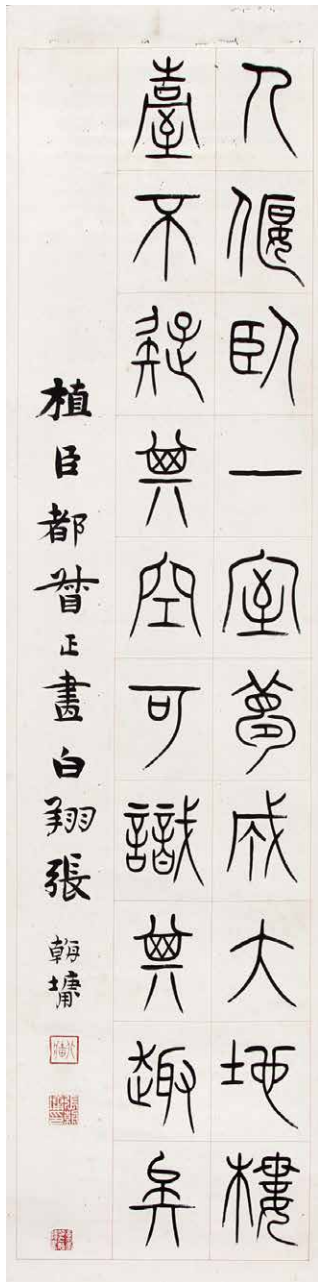 人偃臥一室夢成大地樓
臺不疑其空可識其趣矣
植臣都督正畫白翔張墉